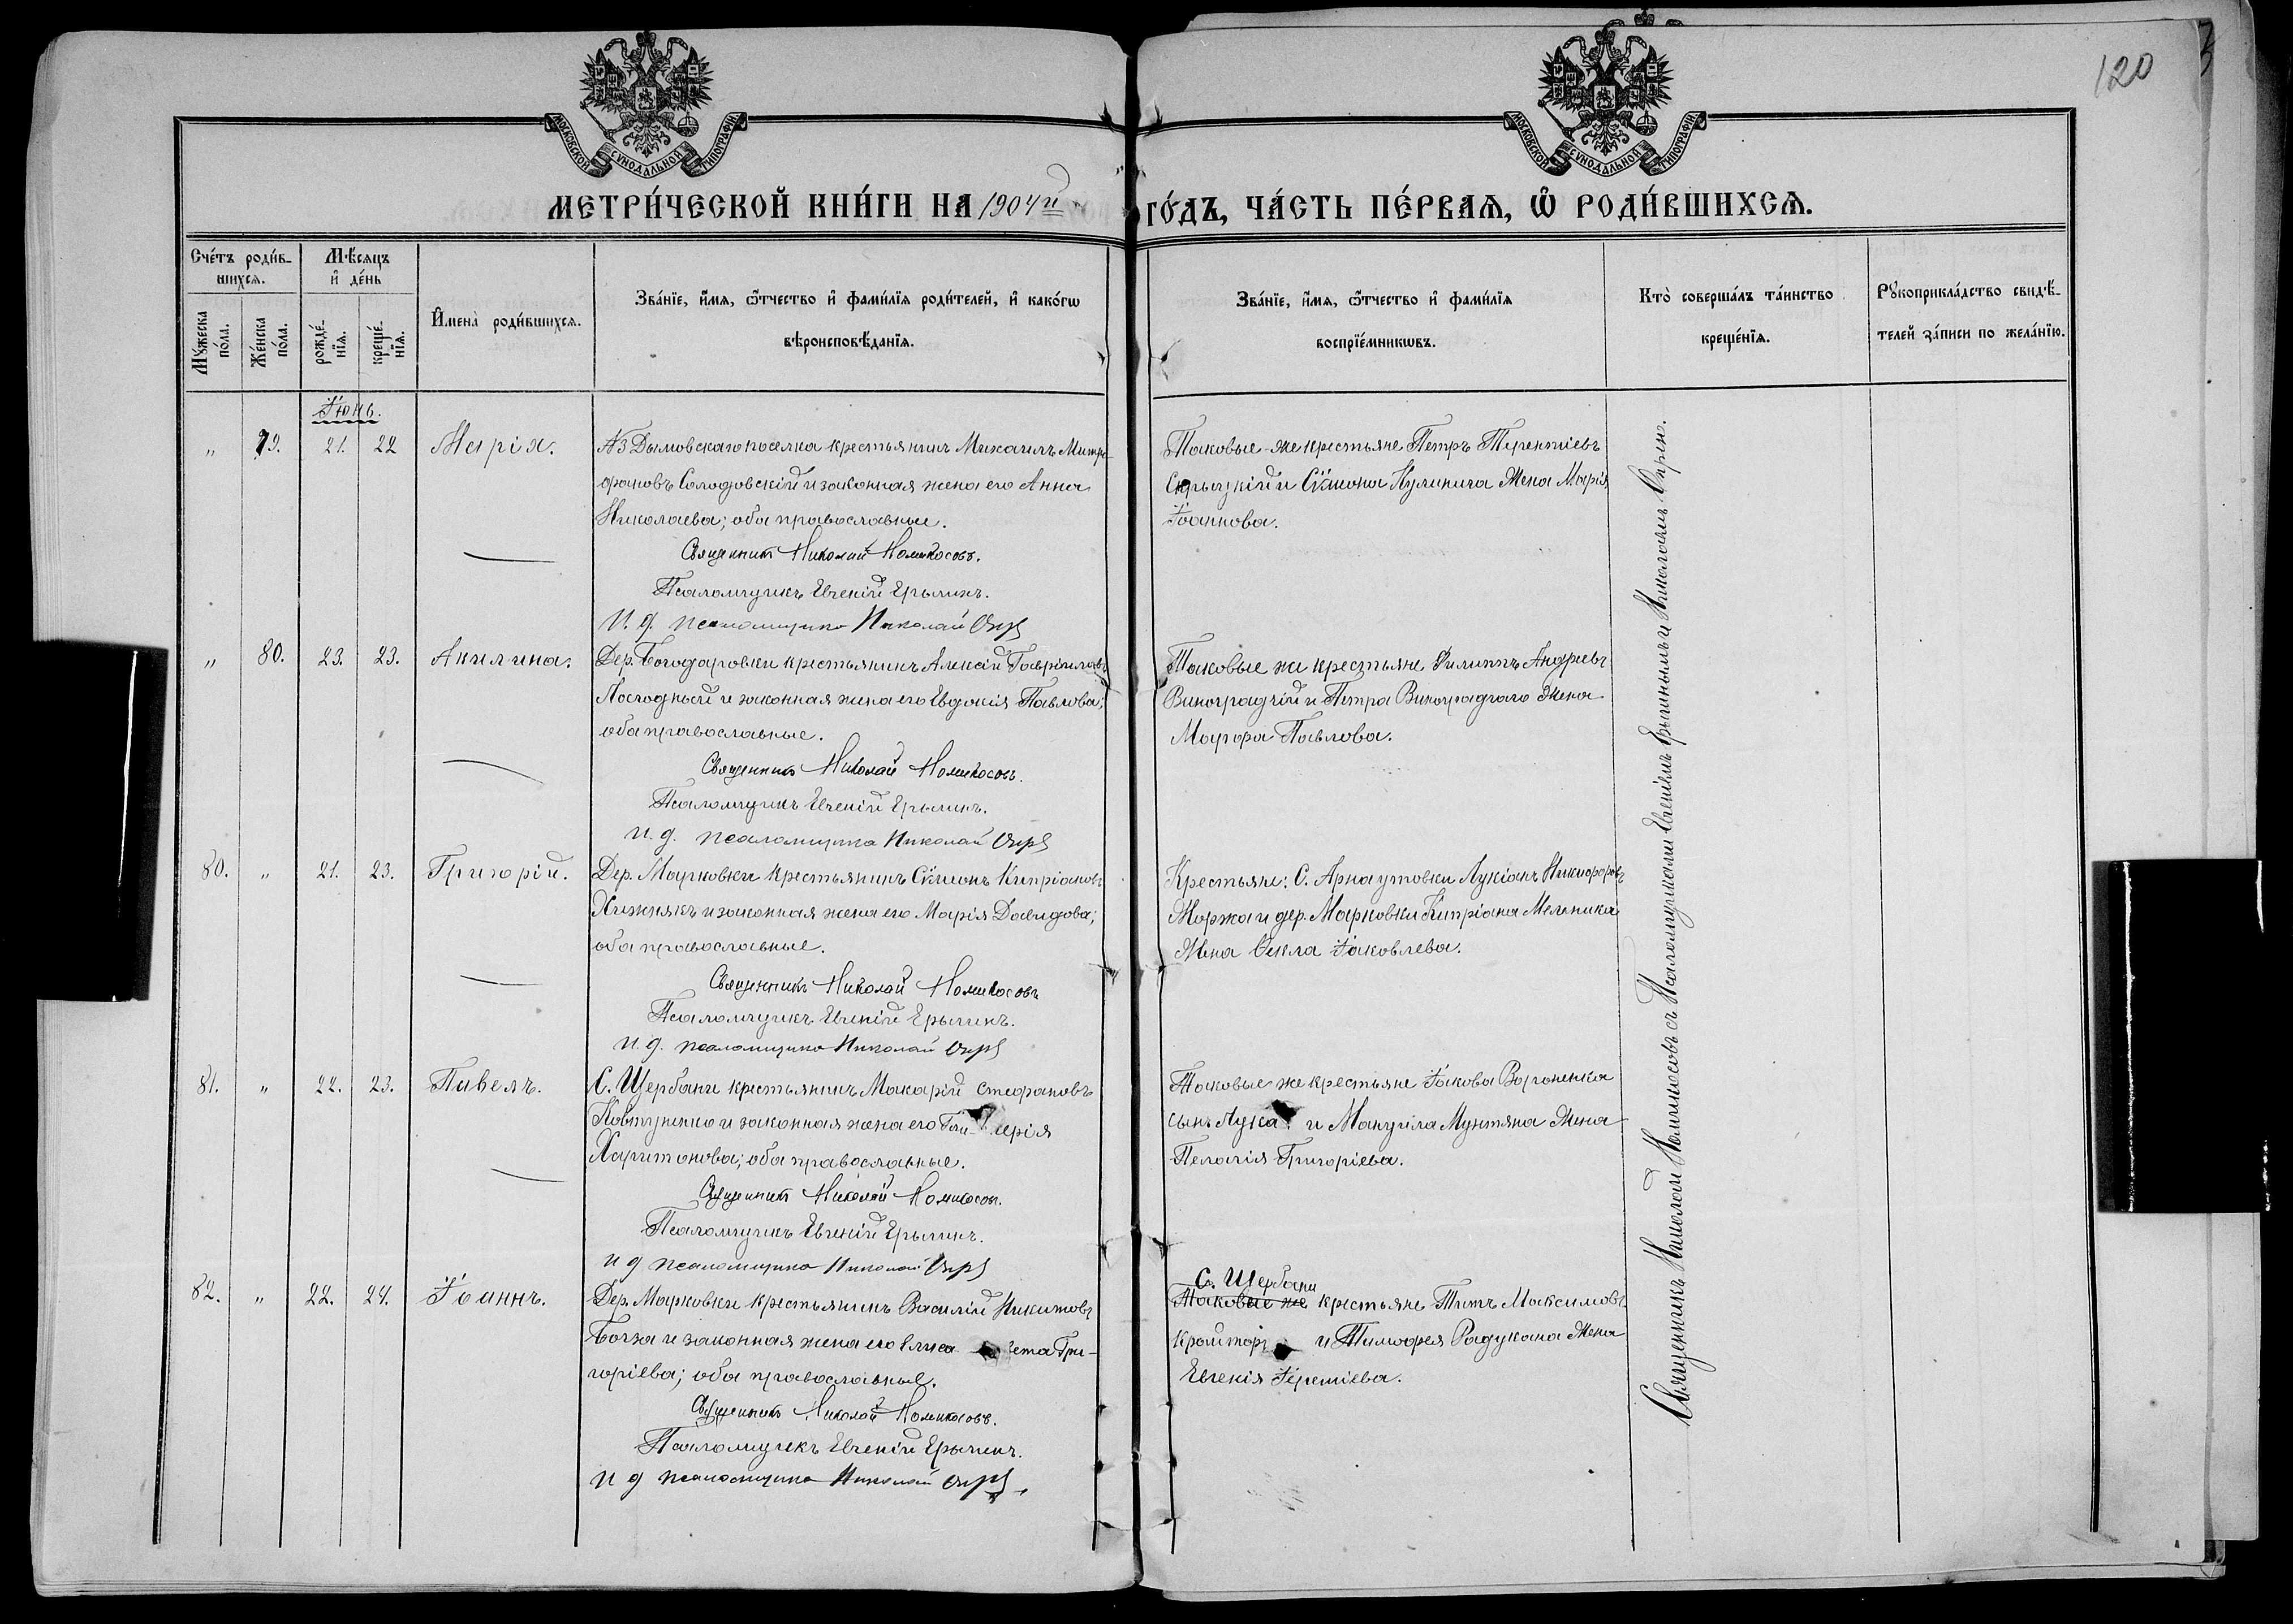 120
МОСКОВСКОЙ СУНОДАЛЬНОЙ ТИПОГРАФІИ
МОСКОВСКОЙ СУНОДАЛЬНОЙ ТИПОГРАФІИ
МЕТРИ́ЧЕСКОЙ КНИ́ГИ НА 1904й го́дъ, ча́сть пе́рвая, ѡ҆ роди́вшихсѧ.
Сче́тъ роди́в-
шихсѧ.
Мѣ́сяцъ
и҆ де́нь
Мꙋ́жеска
по́ла.
Же́нска
по́ла.
рожде́-
нїѧ.
креще́-
нїѧ.
И҆мена̀ роди́вшихсѧ.
Зва́нїе, и҆́мѧ, ѻ҆́тчество и҆ фами́лїѧ роди́телей, и҆ како́гѡ
вѣроисповѣ́данїѧ.
Зва́нїе, и҆́мѧ, ѻ҆́тчество и҆ фами́лїѧ
воспрїе́мникѡвъ.
Кто̀ соверша́лъ та́инство
креще́нїѧ.
Рꙋкоприкла́дство свидѣ́-
телей за́писи по жела́нїю.
Іюнь.
„ 79. 21. 22 Марія.
Дымовскаго поселка крестьянинъ Михаилъ Митро-
фановъ Солодовскій и законная жена его Анна
Николаева; оба православные.
Священникъ Николай Номикосовъ.
Псаломщикъ Евгеній Ерылинъ.
И. д. псаломщика Николай
Таковые-же крестьяне Петръ Терентіевъ
и Сѵмеона Кулинича жена Марія
Іоаннова.
„ 80. 23. 23. Акилина.
Дер. Богодаровки крестьянинъ Алексій Гавріиловъ
и законная жена его Евдокія Павлова;
оба православные.
Священникъ Николай Номикосовъ.
Псаломщикъ Евгеній Ерылинъ.
И. д. псаломщика Николай
Таковые же крестьяне Филиппъ Андреевъ
Виноградчій и Петра Виноградчаго жена
Марфа Павлова.
80. „ 21. 23. Григорій.
Дер. Марковки крестьянинъ Сѵмеонъ Кипріановъ
Хижнякъ и законная жена его Марія Давидова;
оба православные.
Священникъ Николай Номикосовъ
Псаломщикъ Евгеній Ерылинъ.
И. д. псаломщика Николай
Крестьяне: С. Арнаутовки Лукіанъ Никифоровъ
Моржа и дер. Марковки Кипріана Мельника
жена Ѳекла Іаковлева.
81. „ 22. 23. Павелъ.
С. Щербани крестьянинъ Макарій Стефановъ
Ковтуненко и законная жена его Гли керія
Харитонова; оба православные.
Священникъ Николай Номикосовъ.
Псаломщикъ Евгеній Ерылинъ.
И д псаломщика Николай
Таковые же крестьяне Іакова Вороненка
сынъ Лука и Мануила Мунтяна жена
Пелагія Григоріева.
82. „ 22. 24. Іоаннъ.
Дер. Марковки крестьянинъ Василій Никитовъ
Богза и законная жена его Елиса вета Гри-
горіева; оба православные.
Священникъ Николай Номикосовъ.
Псаломщикъ Евгеній Ерылинъ.
И д псаломщика Николай
С. Щербани
Таковые же крестьяне Титъ Максимовъ
и Тимофея Радукана жена
Евгенія Іереміева.
Священникъ Николай Номикосовъ съ Псаломщиками Евгеніемъ Ерылинымъ и Николаемъ